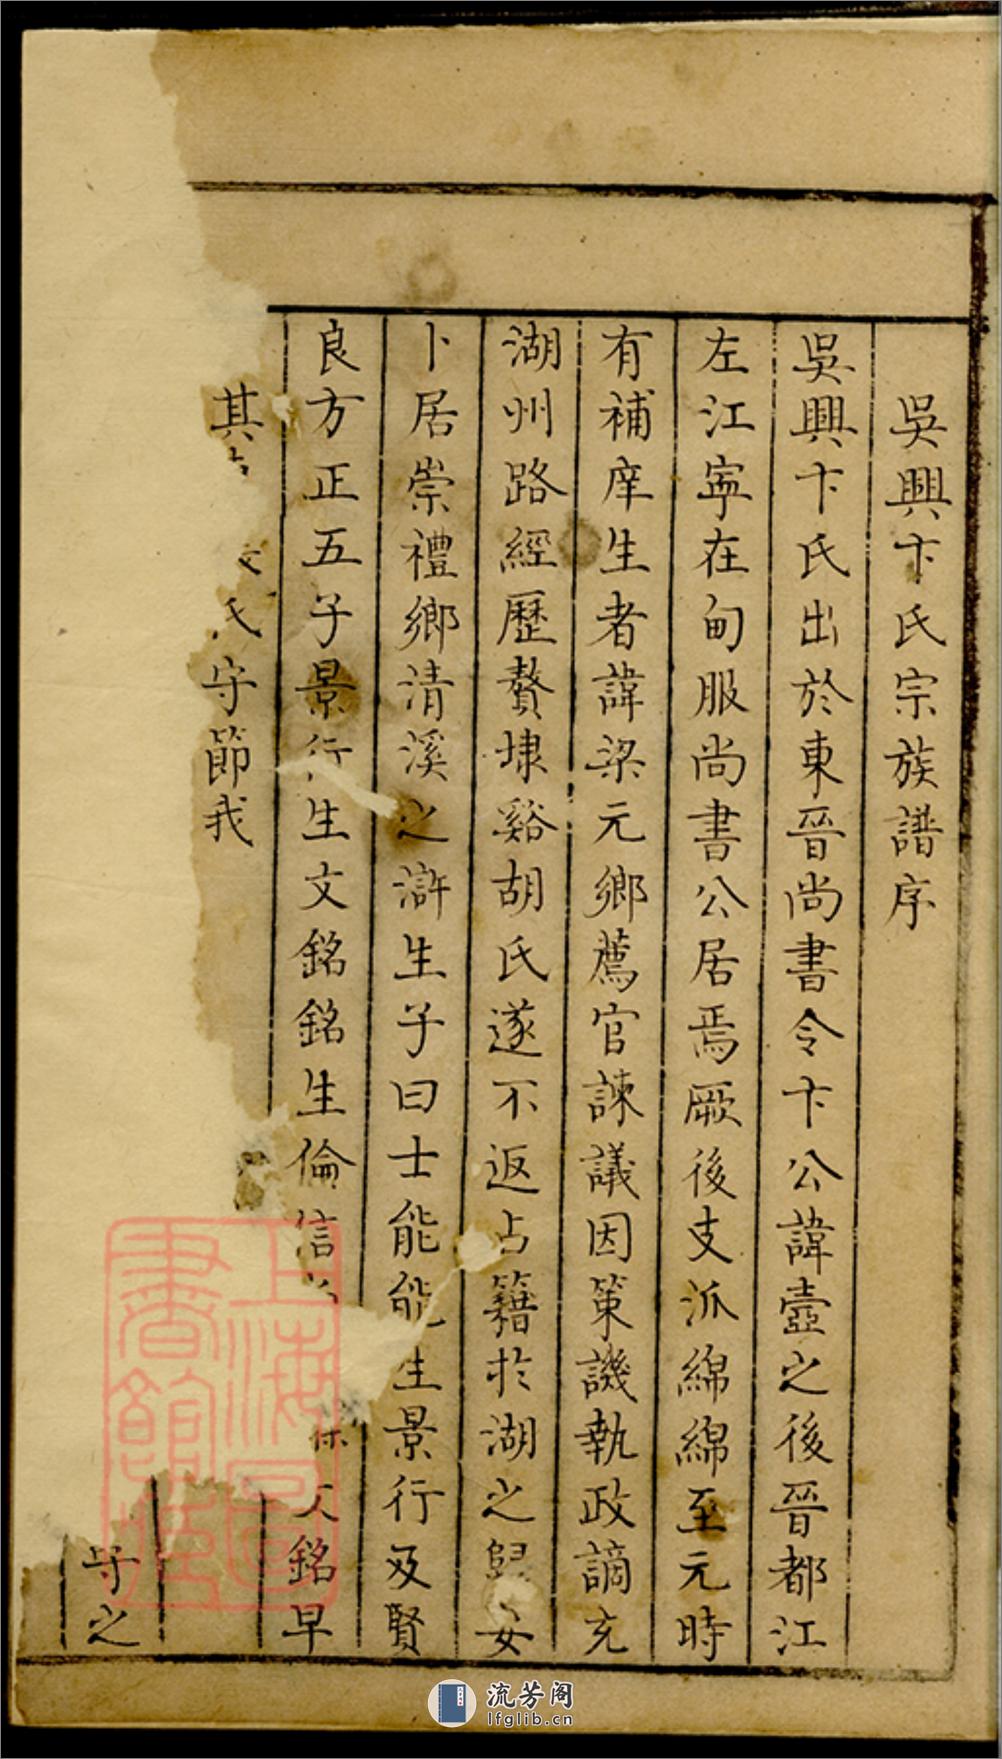 吳興卞氏宗族譜序
吳興卞氏出於東晉尚書令卞公諱壼之後晉都江
左江寧在甸服尚書公居焉厥後支派綿綿至元時
有補庠生者諱梁元鄉薦官諫議因策譏執政謫充
湖州路經歷贅埭谿胡氏遂不返占籍於湖之歸安
卜居崇禮鄉清溪之滸生子曰士能能生景行及賢
良方正五子景行生文銘銘生倫信 銘早
其 氏守節我
守之
上海圖書館藏
流芳阁
lfglib.cn